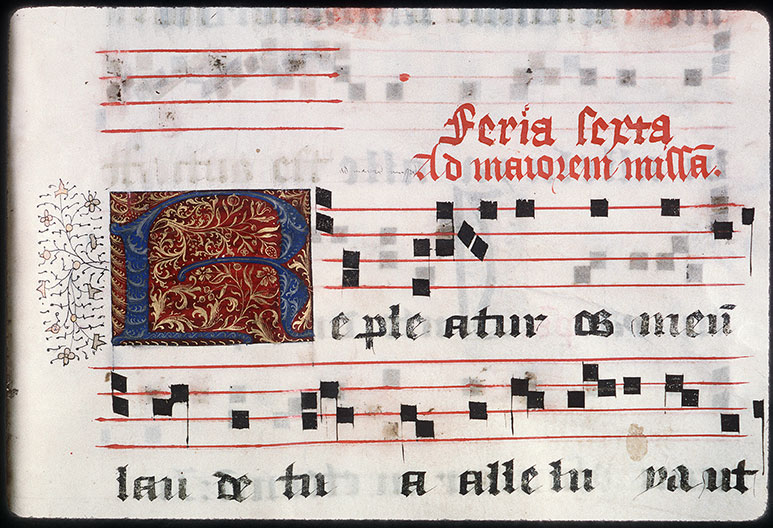 Feria sexta
Ad maiorem missā.
Repleatur os meū
laude tua alleluya ut